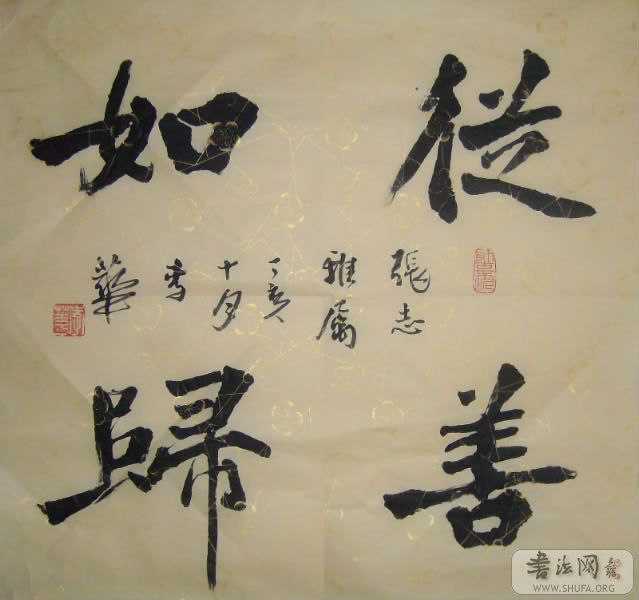 從善
如歸
張志
雅屬
丁亥
十月
華
书法网
WWW.SHUFA.ORG